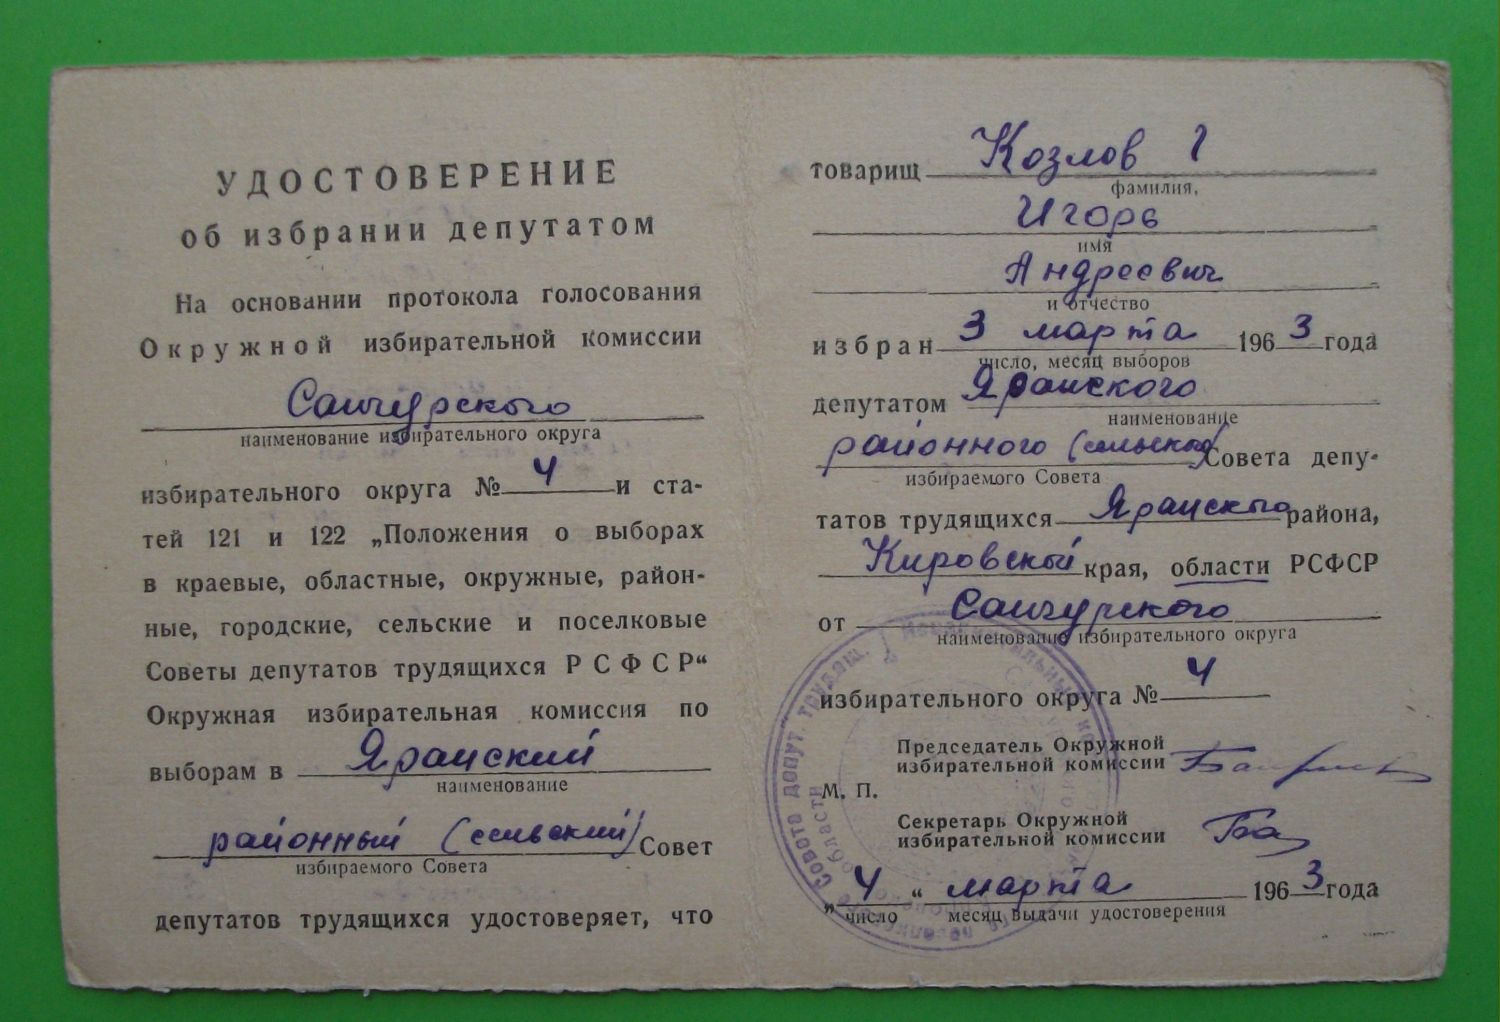 УДОСТОВЕРЕНИЕ
об избрании депутатом
На основании протокола голосования
Окружной избирательной комиссии
Санчурского
наименование избирательного округа
избирательного округа № 4 и ста-
тей 121 и 122 „Положения о выборах
в краевые, областные, окружные, район-
ные, городские, сельские и поселковые
Советы депутатов трудящихся РСФСР“
Окружная избирательная комиссия по
выборам в Яранский
наименование
районный (сельский) Совет
избираемого Совета
депутатов трудящихся удостоверяет, что
товарищ Козлов
фамилия,
Игорь
имя
Андреевич
и отчество
избран 3 марта 1963 года
число, месяц выборов
депутатом Яранского
наименование
районного (сельского) Совета депу-
избираемого Совета
татов трудящихся Яранского района,
Кировской края, области РСФСР
от Санчурского
наименование избирательного округа
избирательного округа № 4
Председатель Окружной
избирательной комиссии
М. П.
Секретарь Окружной
избирательной комиссии
„4“ марта 1963 года
число месяц выдачи удостоверения